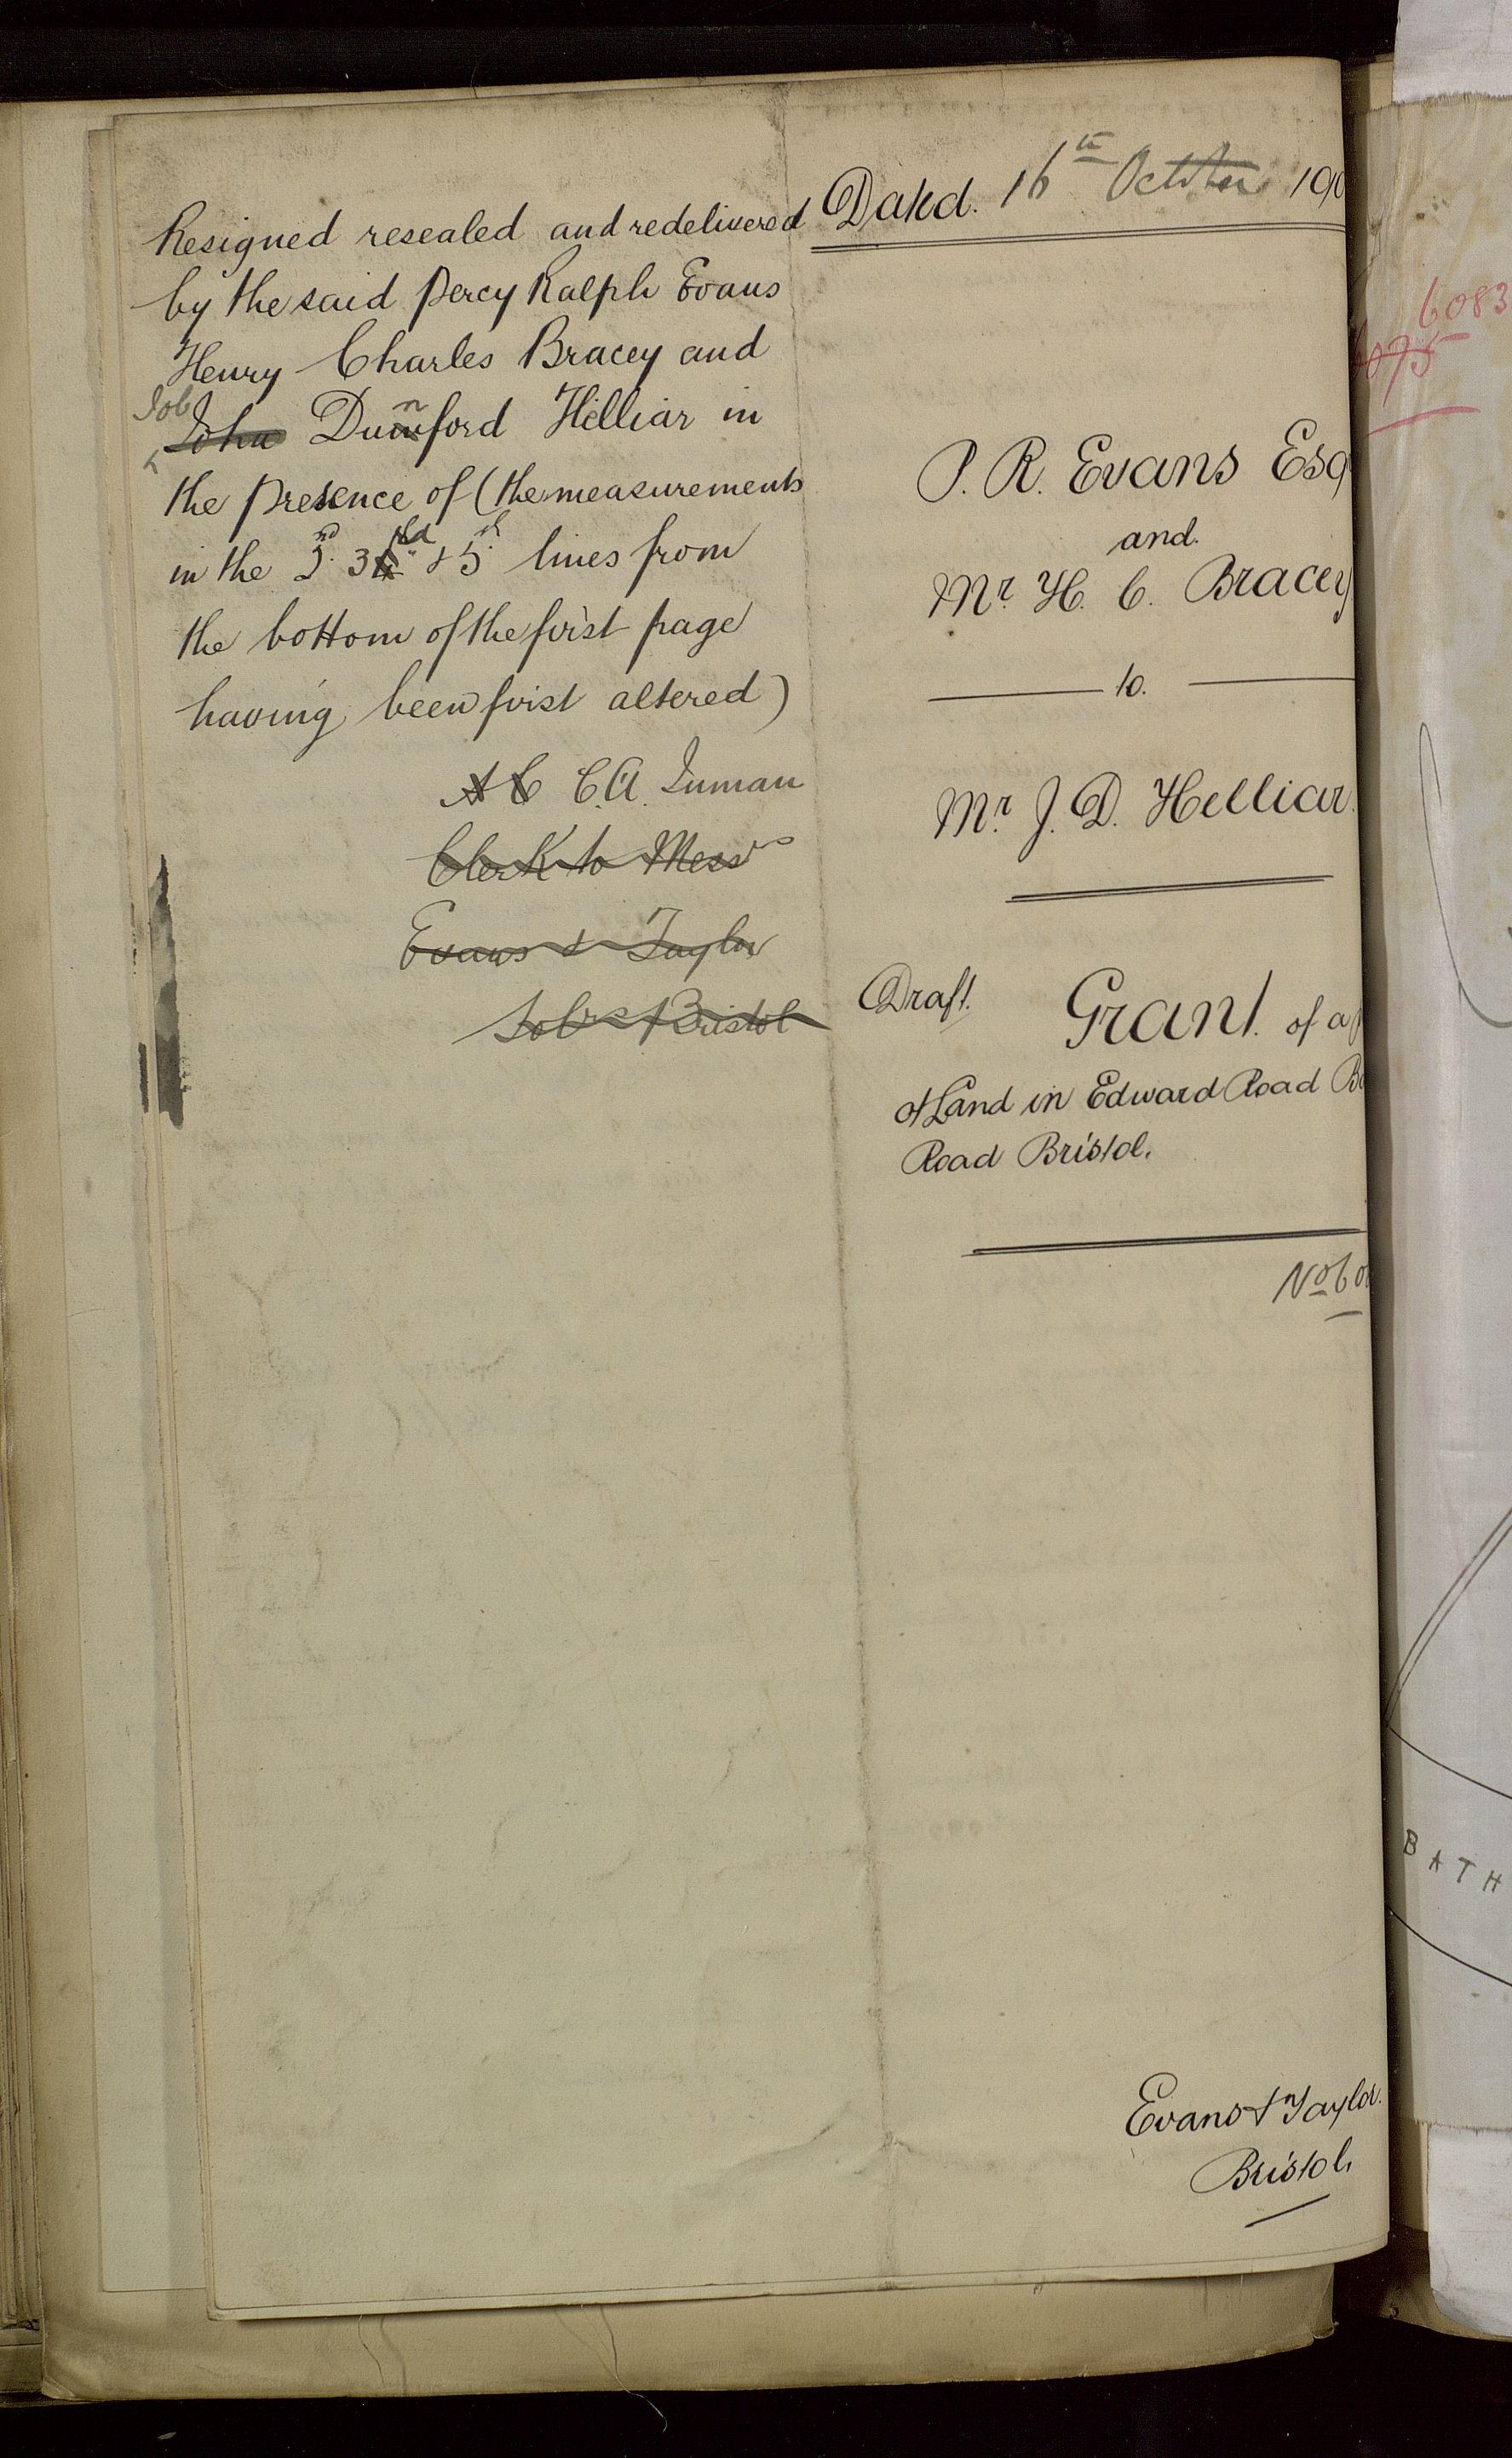 Resigned resealed and redelivered
by the said Percy Ralph Evans
Henry Charles Bracey and
Job
John Durnford Helliar in
the presence of (the measurements
in the 2nd 3rd & 5th lines from
the bottom of the first page
having been first altered)
A C C.A. Inman
Clerk to Messrs
Evans & Taylor
Solrs Bristol
Dated. 16th October 190
P. R. Evans Esq
and.
Mr. H. C. Bracey
to.
Mr. J. D. Helliar.
Draft. Grant. of a
of Land in Edward Road
Road Bristol.
No 60
Evans & Taylor.
Bristol.
6083
BATH